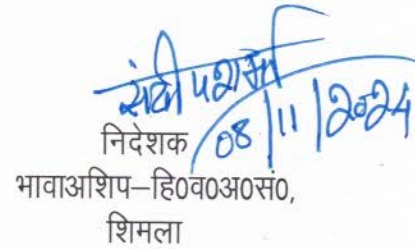 संदीप शर्मा
08/11/2024
निदेशक
भावाअशिप–हि0व0अ0सं0,
शिमला